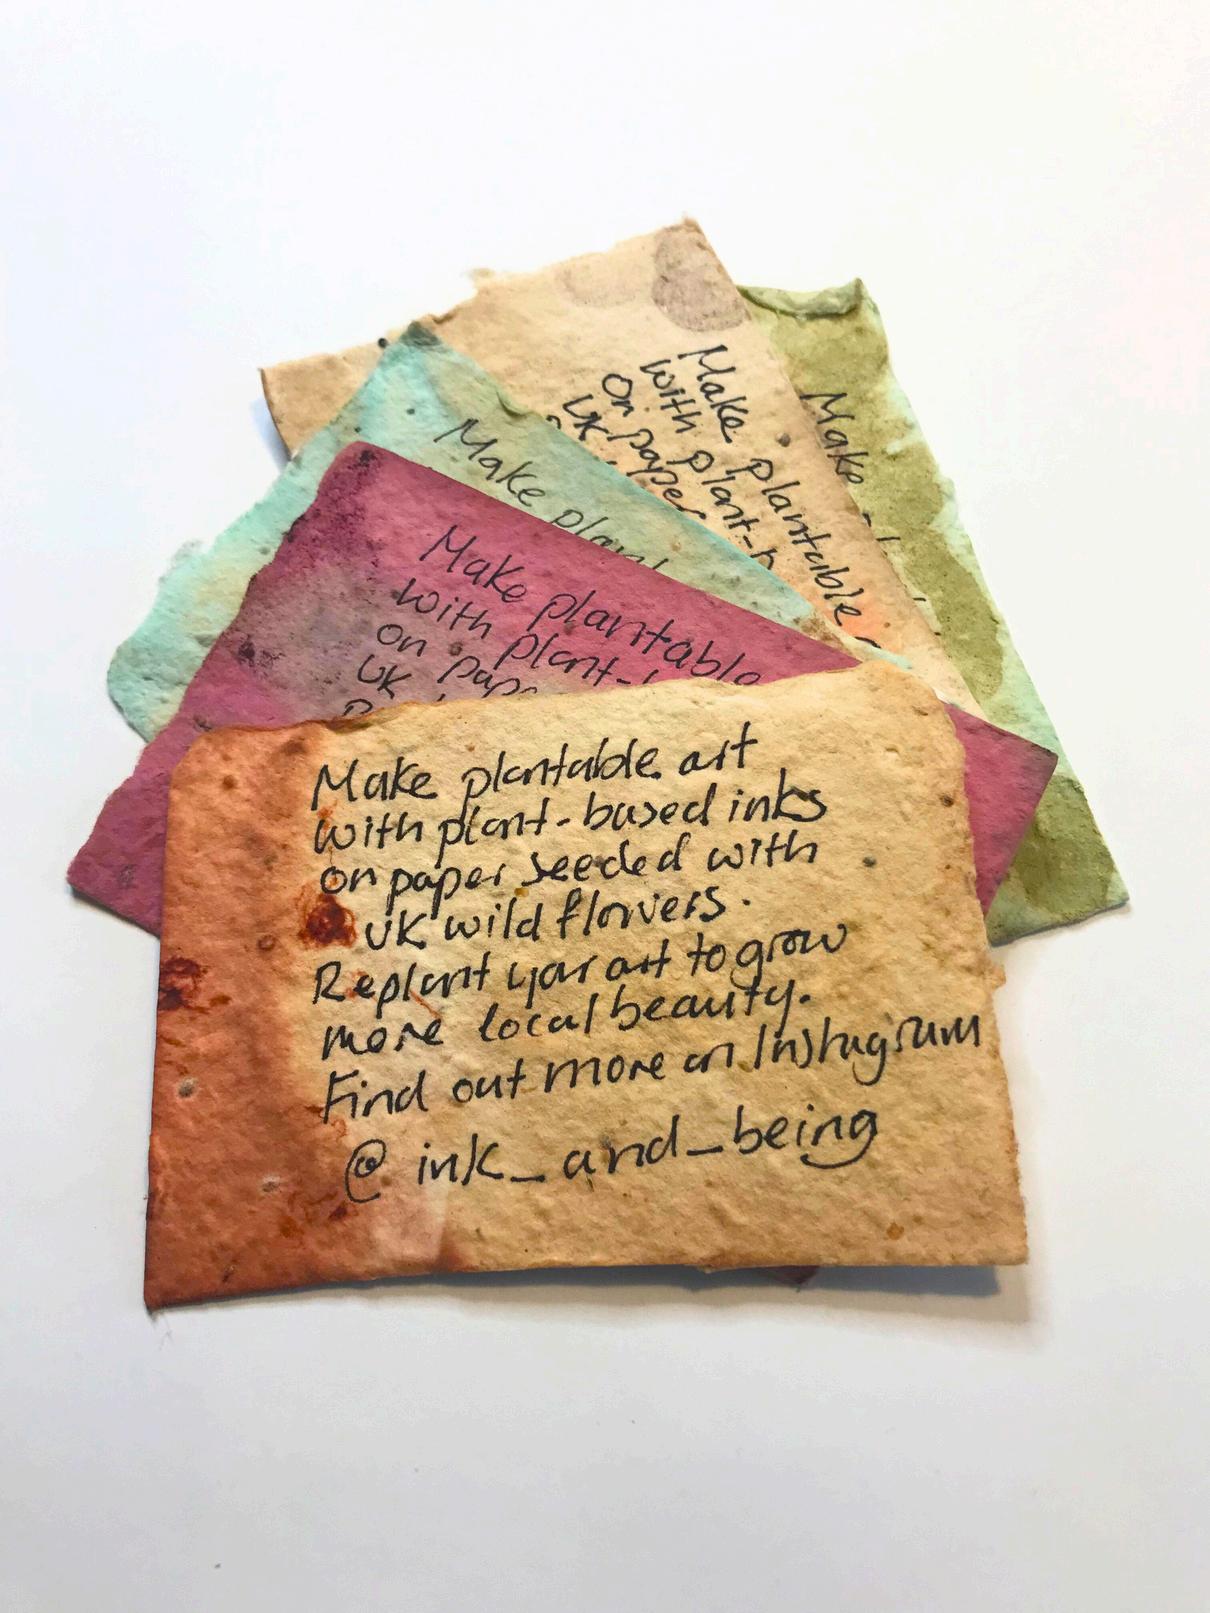 Make plantable art
with plant-based inks
on paper seeded with
UK wild flowers.
Replant your art to grow
more local beauty.
Find out more on Instagram
@ink_and_being
Make plantable
with plant-
on pape
UK
Make plant
Make plantable
with plant-b
on paper
UK
Make